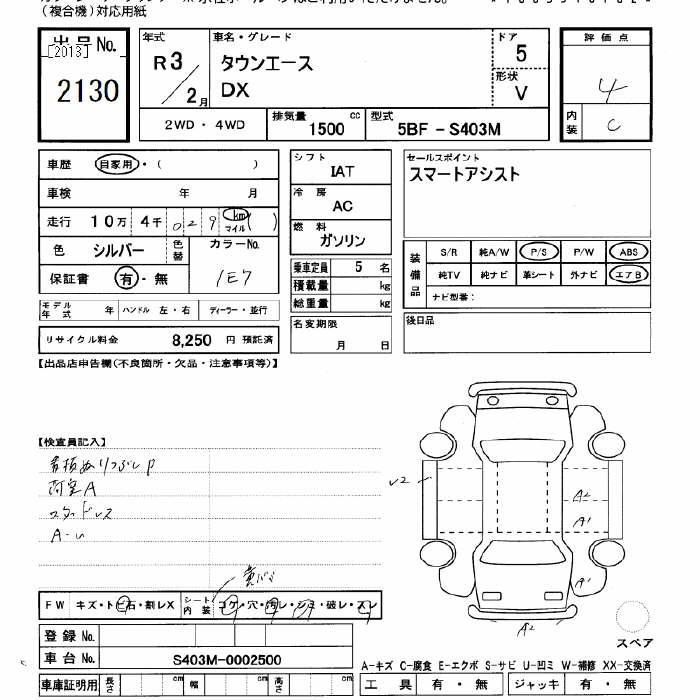 (複合機)対応用紙
出品No.
[2013]
2130
年式
R3
2月
車名・グレード
タウンエース
DX
ドア
5
形状
V
評価点
4
内装
C
2WD ・ 4WD
排気量
1500 cc
型式
5BF - S403M
車歴
自家用・( )
車検 年 月
走行 10万 4千 029 km マイル ( )
色 シルバー 色替
カラーNo.
1E7
保証書 有・無
モデル年式 年 ハンドル 左・右 ディーラー・並行
リサイクル料金 8,250 円 預託済
シフト
IAT
冷房
AC
燃料
ガソリン
乗車定員 5 名
積載量 kg
総重量 kg
名変期限
月 日
セールスポイント
スマートアシスト
装備品
S/R 純A/W P/S P/W ABS
純TV 純ナビ 革シート 外ナビ エアB
ナビ型番:
後日品
【出品店申告欄(不良箇所・欠品・注意事項等)】
【検査員記入】
荷室A
スタッドレス
FW キズ・トビ石・割レX
シート内装 コゲ・穴・汚レ・シミ・破レ・スレ
登録No.
車台No. S403M-0002500
車庫証明用 長さ cm 幅 cm 高さ cm
A2
A1
A1
A2
スペア
A-キズ C-腐食 E-エクボ S-サビ U-凹ミ W-補修 XX-交換済
工具 有・無 ジャッキ 有・無